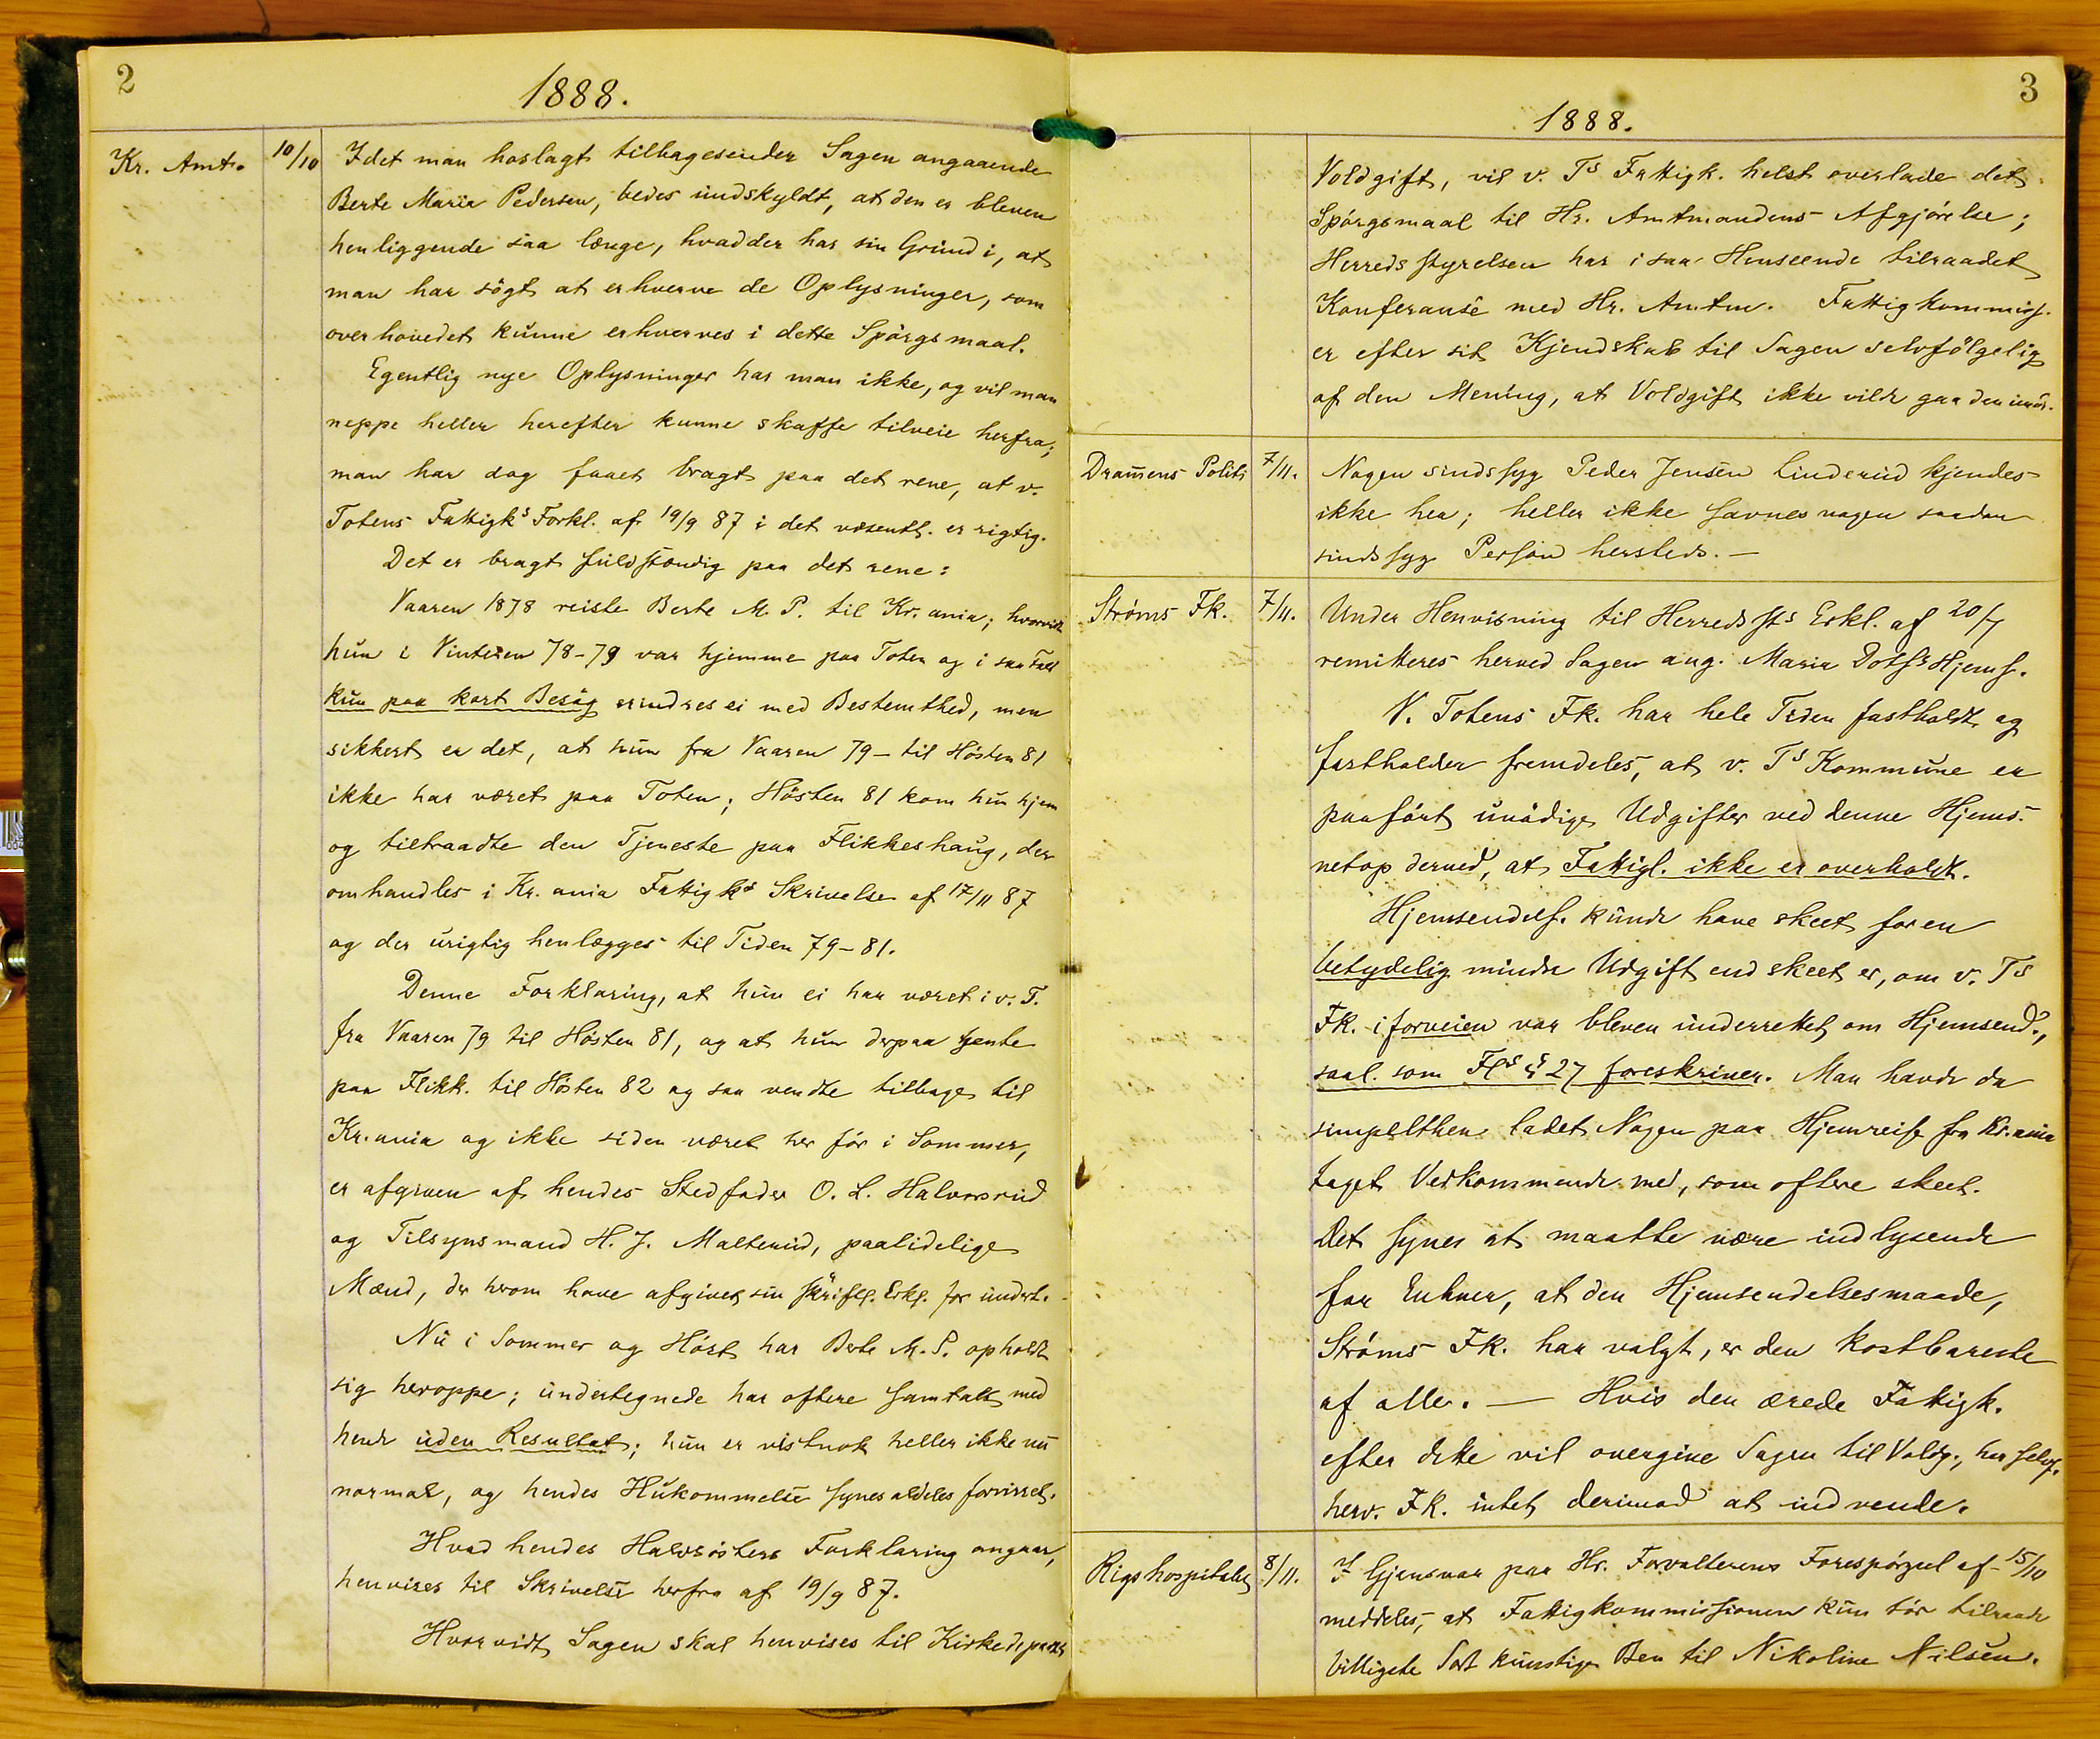 2
1888.
Kr. Amt. 10/10 Idet man hoslagt tilbagesender Sagen angaaende
Berte Maria Pedersen, bedes undskyldt, at den er bleven
henliggende saa længe, hvad der har sin Grund i, at
man har søgt at erhverve de Oplysninger, som
overhovedet kunne erhverves i dette Spørgsmaal.
Egentlig nye Oplysninger har man ikke, og vil man
neppe heller herefter kunne skaffe tilveie herfra;
man har dog faaet bragt paa det rene, at v.
Totens Fattigks Forkl. af 19/9 87 i det væsentl. er rigtig.
Det er bragt fuldstændig paa det rene:
Vaaren 1878 reiste Berte M. P. til Kr.ania; hvorvidt
hun i Vinteren 78-79 var hjemme paa Toten og i saa Fald
kun paa kort Besøg erindres ei med Bestemthed, men
sikkert er det, at hun fra Vaaren 79 – til Høsten 81
ikke har været paa Toten; Høsten 81 kom hun hjem
og tiltraadte den Tjeneste paa Flikkeshaug, der
omhandles i Kr.ania Fattigks Skrivelse af 17/11 87
og der urigtig henlægges til Tiden 79-81.
Denne Forklaring, at hun ei har været i v. T.
fra Vaaren 79 til Høsten 81, og at hun derpaa tjente
paa Flikk. til Høsten 82 og saa vendte tilbage til
Kr.ania og ikke siden været her før i Sommer,
er afgiven af hendes Stedfader O. L. Halvorsrud
og Tilsynsmand H. J. Malterud, paalidelige
Mænd, der herom have afgivet sin skriftl. Erkl. for undert.
Nu i Sommer og Høst har Berte M. P. opholdt
sig heroppe; undertegnede har oftere samtalt med
hende uden Resultat; hun er vistnok heller ikke nu
normal, og hendes Hukommelse synes aldeles forvirret.
Hvad hendes Halvsøsters Forklaring angaar,
henvises til Skrivelse herfra af 19/9 87.
Hvorvidt Sagen skal henvises til Kirkedepartet
3
1888.
Voldgift, vil v. Ts Fattigk. helst overlade det
Spørgsmaal til Hr. Amtmandens Afgjørelse;
Herredsstyrelsen har i saa Henseende tilraadet
Konferanse med Hr. Amtm. Fattigkommiss.
er efter sit Kjendskab til Sagen selvfølgelig
af den Mening, at Voldgift ikke vilde gaa den imod.
Drammens Politi 7/11. Nogen sindssyg Peder Jensen Linderud kjendes
ikke her; heller ikke savnes nogen saadan
sindssyg Person hersteds. –
Strøms Fk. 7/11. Under Henvisning til Herredssts Erkl. af 20/7
remitteres herved Sagen ang. Maria Hjems.
V. Totens Fk. har hele Tiden fastholdt og
fastholder fremdeles, at v. Ts Kommune er
paaført unødige Udgifter ved denne Hjems.
netop derved, at Fattigl. ikke er overholdt.
Hjemsendels. kunde have skeet for en
betydelig mindre Udgift end skeet er, om v. Ts
Fk. i forveien var bleven underrettet om Hjemsend.,
saal. som Fls § 27 foreskriver. Man havde da
simpelthen ladet Nogen paa Hjemreise fra Kr.ania
taget Vedkommende med, som oftere skeet.
Det synes at maatte være indlysende
for Enhver, at den Hjemsendelsesmaade,
Strøms Fk. har valgt, er den kostbareste
af alle. — Hvis den ærede Fattigk.
efter dette vil overgive Sagen til Voldg., har selvf.
herv. Fk. intet derimod at indvende.
Rigshospitalet 8/11. I Gjensvar paa Hr. Forvalterens Forespørgsel af 15/10
meddeles, at Fattigkommissionen kun tør tilraade
billigste Sort kunstige Ben til Nikoline Nilsen.